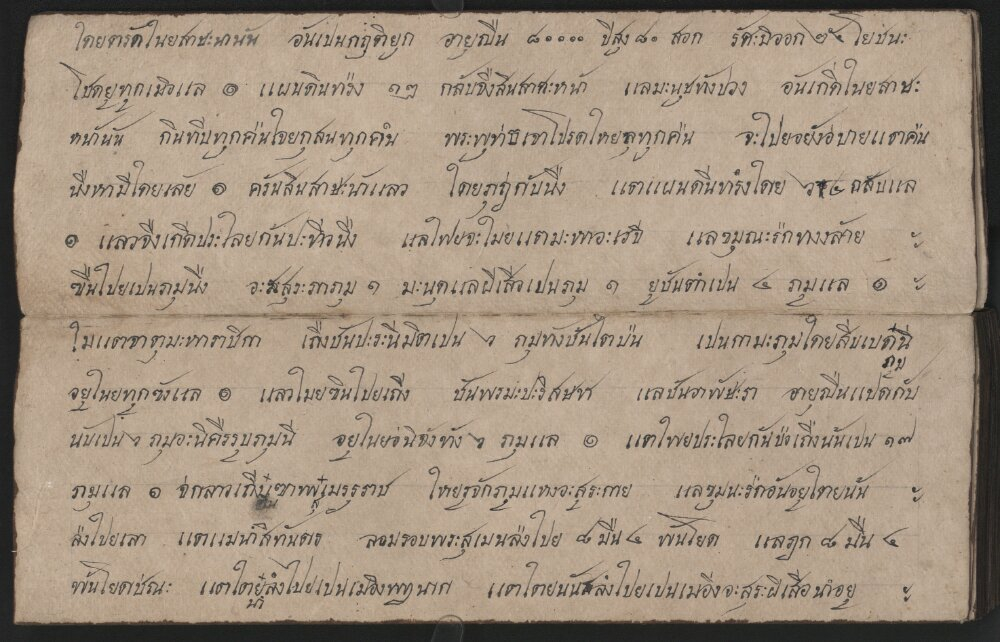 ไดยตรัดในยสาชะนานัน อันเปนกฏติยูก อายูยืน ๘๐๐๐๐ ปีสูง ๘๐ สอก รัดะมีออก ๒๕ โยชนะ
โชดยูทูกเมิอแล ๑ แผนดินทรัง ๑๒ กลับจึงสินสาดะหน้า แลมะนุชทังปวง อันเกิดในยสาชะ
หน้านัน กินทีบทุกคํนใจยกูสนทุกคํน พระพุทธิเจาโปรดไหยลุทุกคํน จะไปยอยังอบายแตาคํน
นึงหามีไดยเลย ๑ ครันสินสาษะน้าแลว ไดยภูฏกับนึง แตาแผนดินทรังไดย ๖๔ กลับแล
๑ แลวจึงเกีดประไลยกันปะทีวนึง แลไฟยจะไมยแตามะหาอะเวจี แลขุมณะรํกทงงลาย ะ
ขืนไปยเปนภุมนึง อะสสุระกาภุม ๑ มะนุดแลผีเสือเปนภุม ๑ ยูชันดำเปน ๔ ภูมแล ๑ ะ
ไมแตจาตุมะหาราชีกา เถึงชันปะระนีมีตเปน ๖ ภุมทังชันไดบํน เปนกามะภุมไดยสีบเบดนี
อยูในยทูกขังแล ๑ แลวไมยขินไปยเถึง ชันพรมมะปะริสษชา แลชันอาพัษะรา อายูยืนแปดกับ
ภุม
นับเปน ๖ ภุมอะนีคืรรุบภุมนี อยูในยอํนีจังทัง ๖ ภุมแล ๑ แตาไพยประไลยกันบํอเถึงนันเปน ๑๗
ภูมแล ๑ จํกลาวเถึงเขาพฺสูเมรุรราช ไหยรูจักภูมแหงอะสูระกาย แลขุมนะรํกอันอยูไตายนัน ะ
ลํงไปยเลา แตาแมน้ำสีทันดอ ลอมรอบพระสูเมนลํงไปย ๘ มืน ๔ พันโยด แลภูก ๘ มืน ๔
พันโยดชณะ แตาไตานำลํงไปยเปนเมืองพญานาก แตาไตยนันลํงไปยเปนเมืองอะสูระผีเสือนำอยู ะ